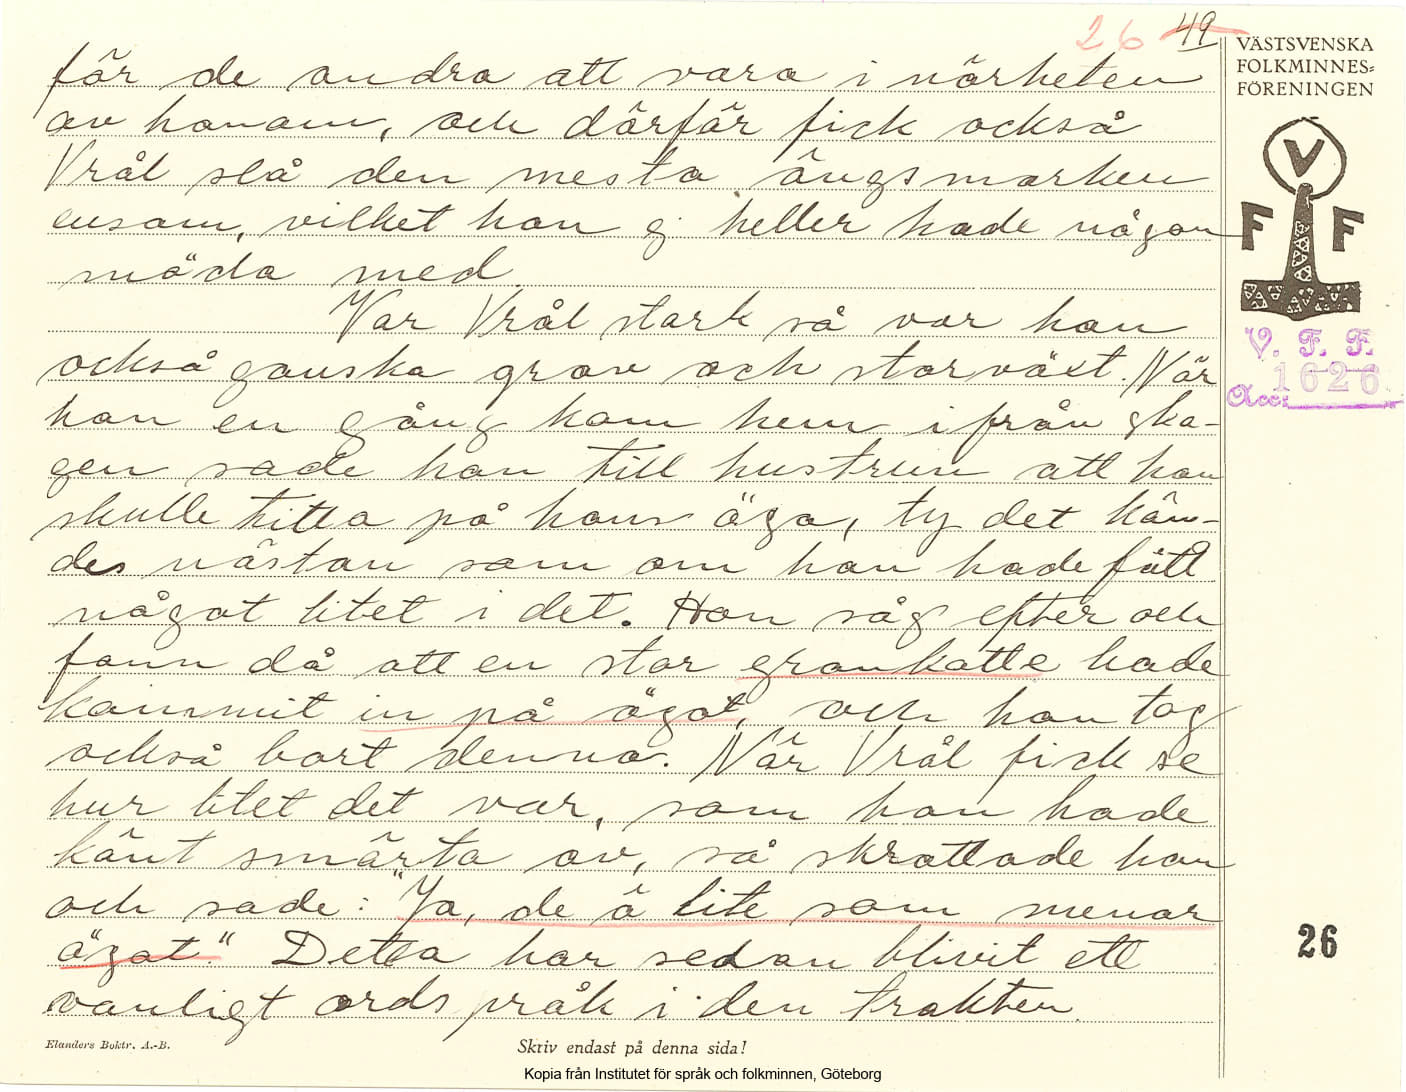 26 49
för de andra att vara i närheten
av honom, och därför fick också
Vrål slå den mesta ängsmarken
ensam, vilket han ej heller hade någon
möda med.
Var Vrål stark så var han
också ganska grov och storväxt. När
han en gång kom hem ifrån ska-
gen sade han till hustrun att hon
skulle titta på hans öga, ty det kän-
des nästan som om han hade fått
något litet i det. Hon såg efter och
fann då att en stor grankotte hade
kommit in på ögat, och hon tog
också bort denna. När Vrål fick se
hur litet det var, som han hade
känt smärta av, så skrattade han
och sade: "Ja, de ä lite som menar
ögat." Detta har sedan blivit ett
vanligt ordspråk i den trakten.
VÄSTSVENSKA
FOLKMINNES=
FÖRENINGEN
V
F F
V. F. F.
1626
Acc:
26
Elanders Boktr. A.-B.
Skriv endast på denna sida!
Kopia från Institutet för språk och folkminnen, Göteborg